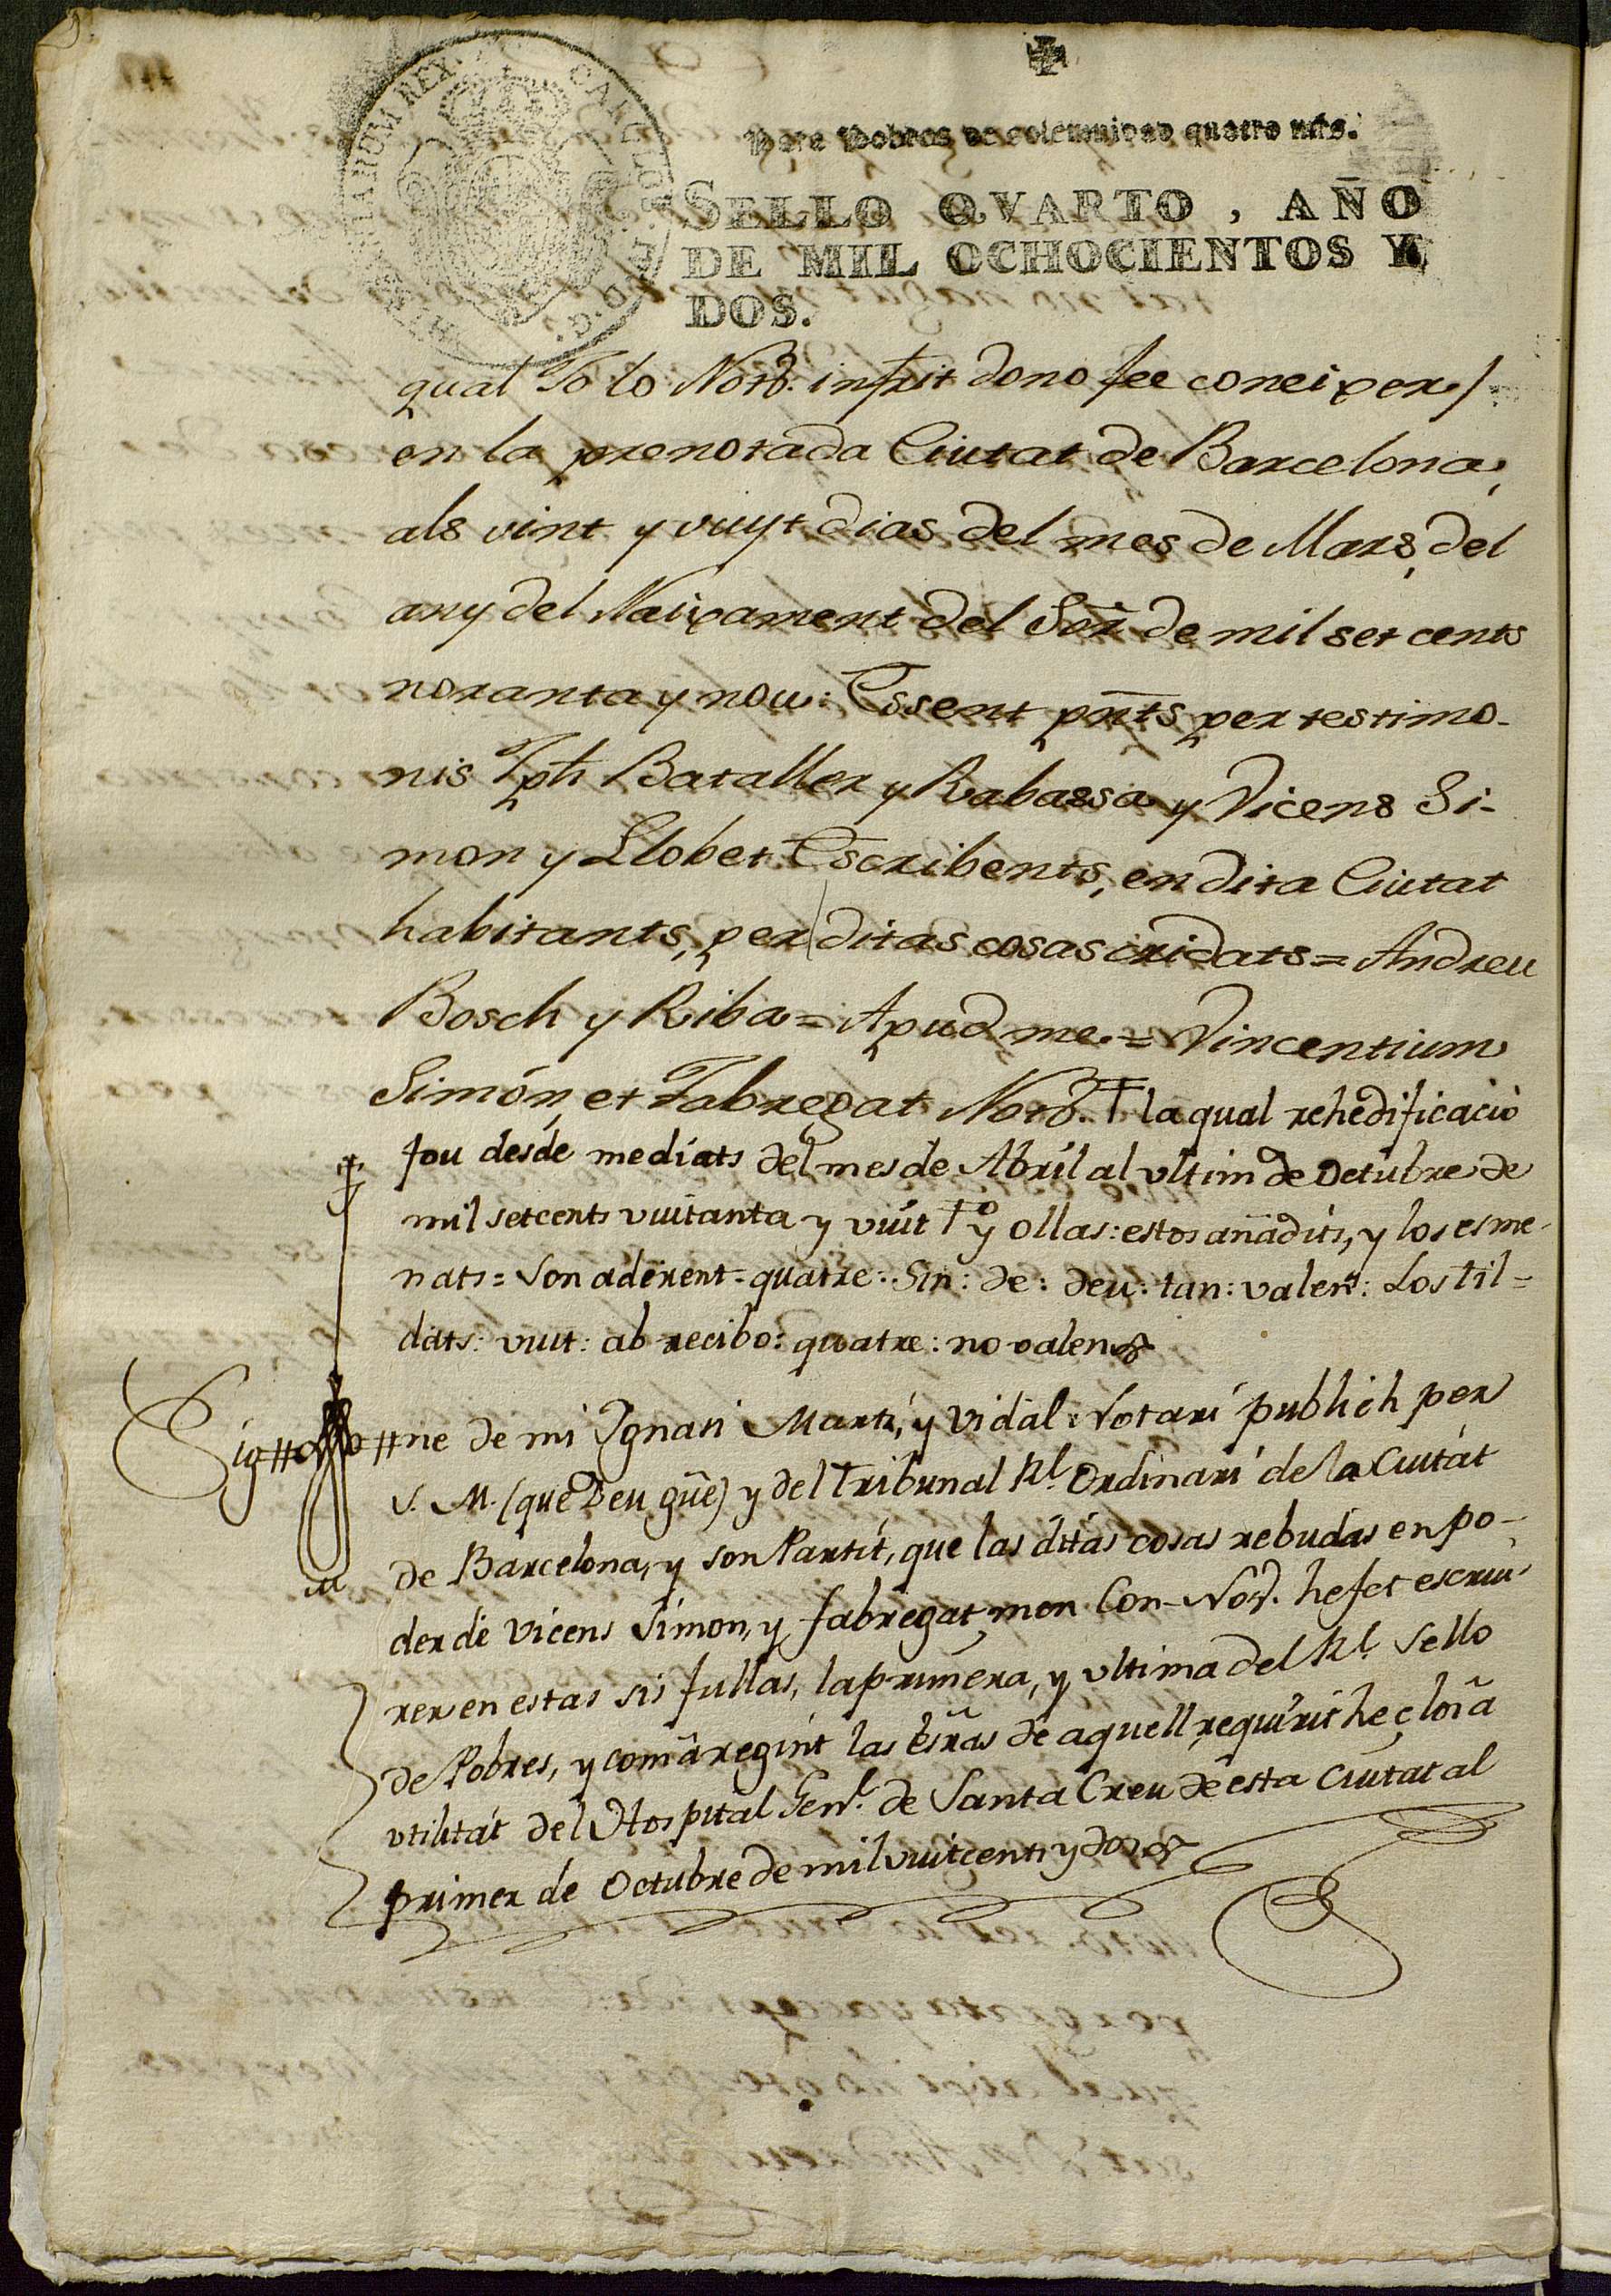 Para Pobres de solemnidad quatro mrs.
CAROLUS IV D. G. HISPANIARUM REX
SELLO QVARTO, AÑO
DE MIL OCHOCIENTOS Y
DOS.
qual Yo lo Notō. infrit dono fee coneixer)
en la prenotada Ciutat de Barcelona,
als vint y vuyt dias del mes de Mars, del
any del Naixament del Sōr de mil set cents
noranta y nou: Essent pn̄ts per testimo-
nis Jph Bataller y Rabassa y Vicens Si-
mon y Llobet Escribents, en dita Ciutat
habitants, per ditas cosas cridats = Andreu
Bosch y Riba = Apud me = Vincentium
Simón, et Fabregat Notō. † la qual rehedificació
fou desde mediats del mes de Abríl al vltim de Octubre de
mil setcents vuitanta y vuit †o y ollas: estos añadits, y los esme-
nats = son aderent = quatre: Sin: de: deu: tan: valent: Los til=
dats: vuit: ab recibo: quatre: no valen
Sig##ne de mi Ignasi Martí, y Vidal Notari publich per
S. M. (que Deu gūe) y del Tribunal Rl. Ordinari de la Ciutát
de Barcelona, y son Partit, que las ditas cosas rebudas en po-
der de Vicens Simon, y Fabregat, mon Con-Notō. he fet escriu-
rer en estas sis fullas, la primera, y vltima del Rl. Sello
de Pobres, y com á regint las Esr̄as de aquell requirit he clos á
vtilitát del Hospital Genl. de Santa Creu de esta Ciutat al
primer de Octubre de mil vuitcents y dos